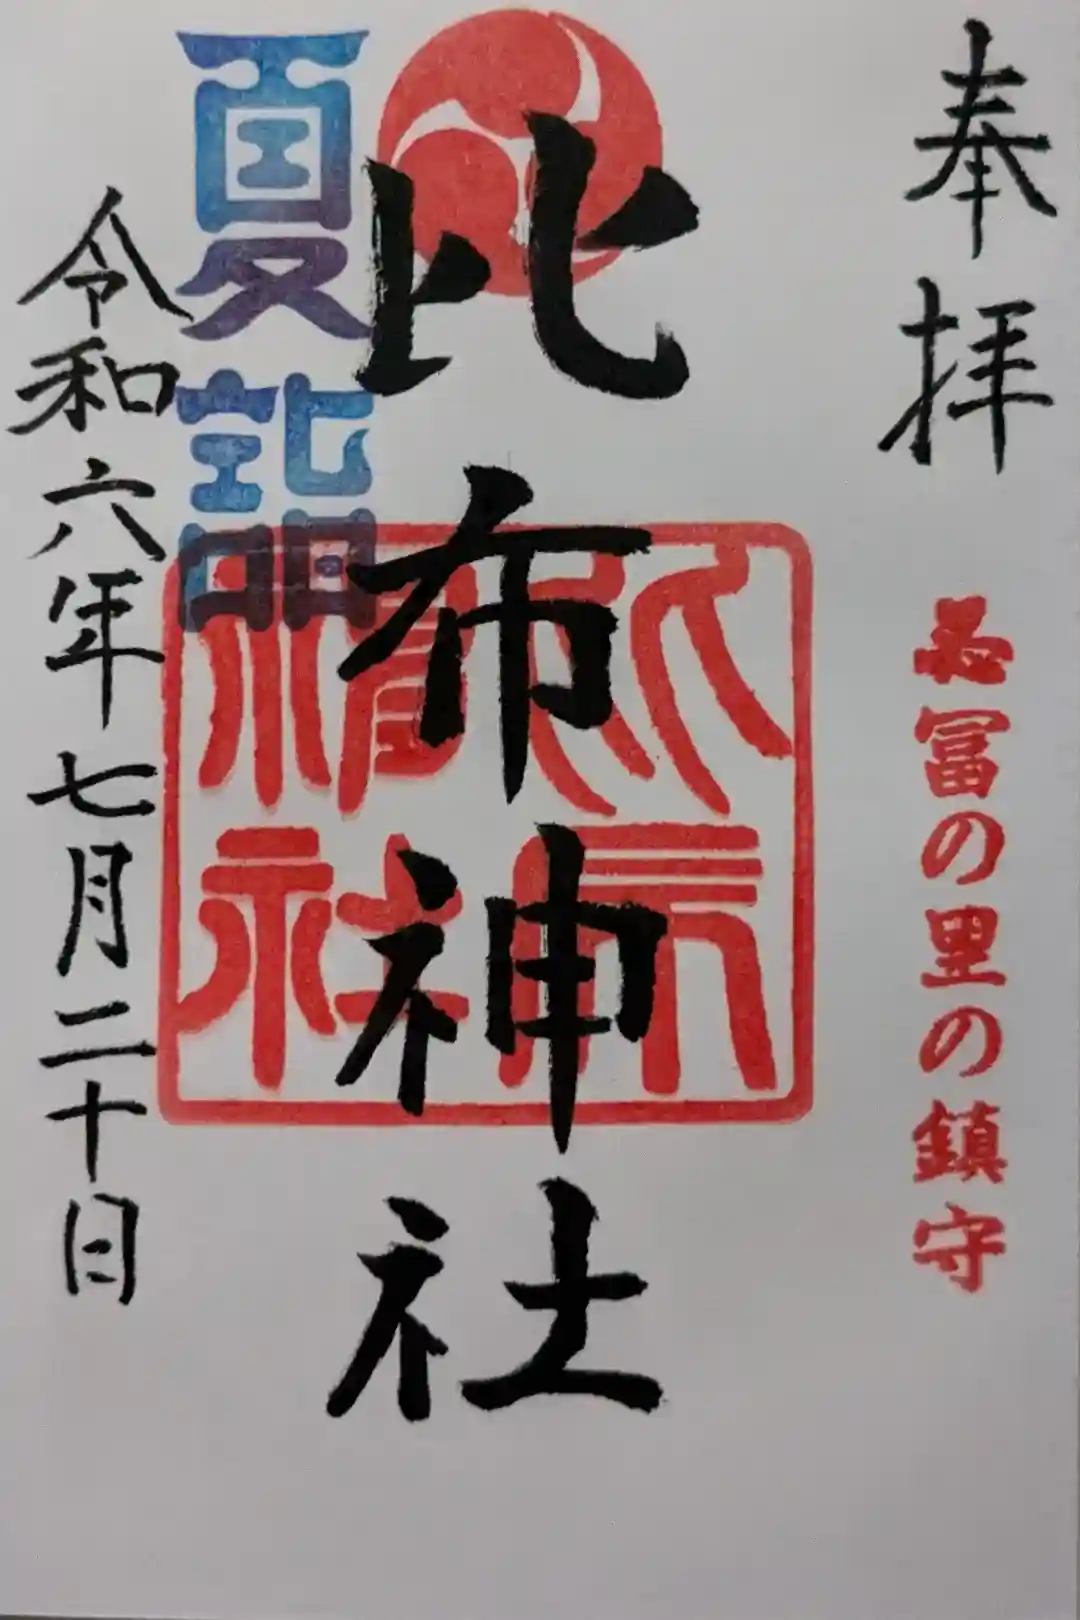 奉拝
冨の里の鎮守
比布神社
夏詣
令和六年七月二十日